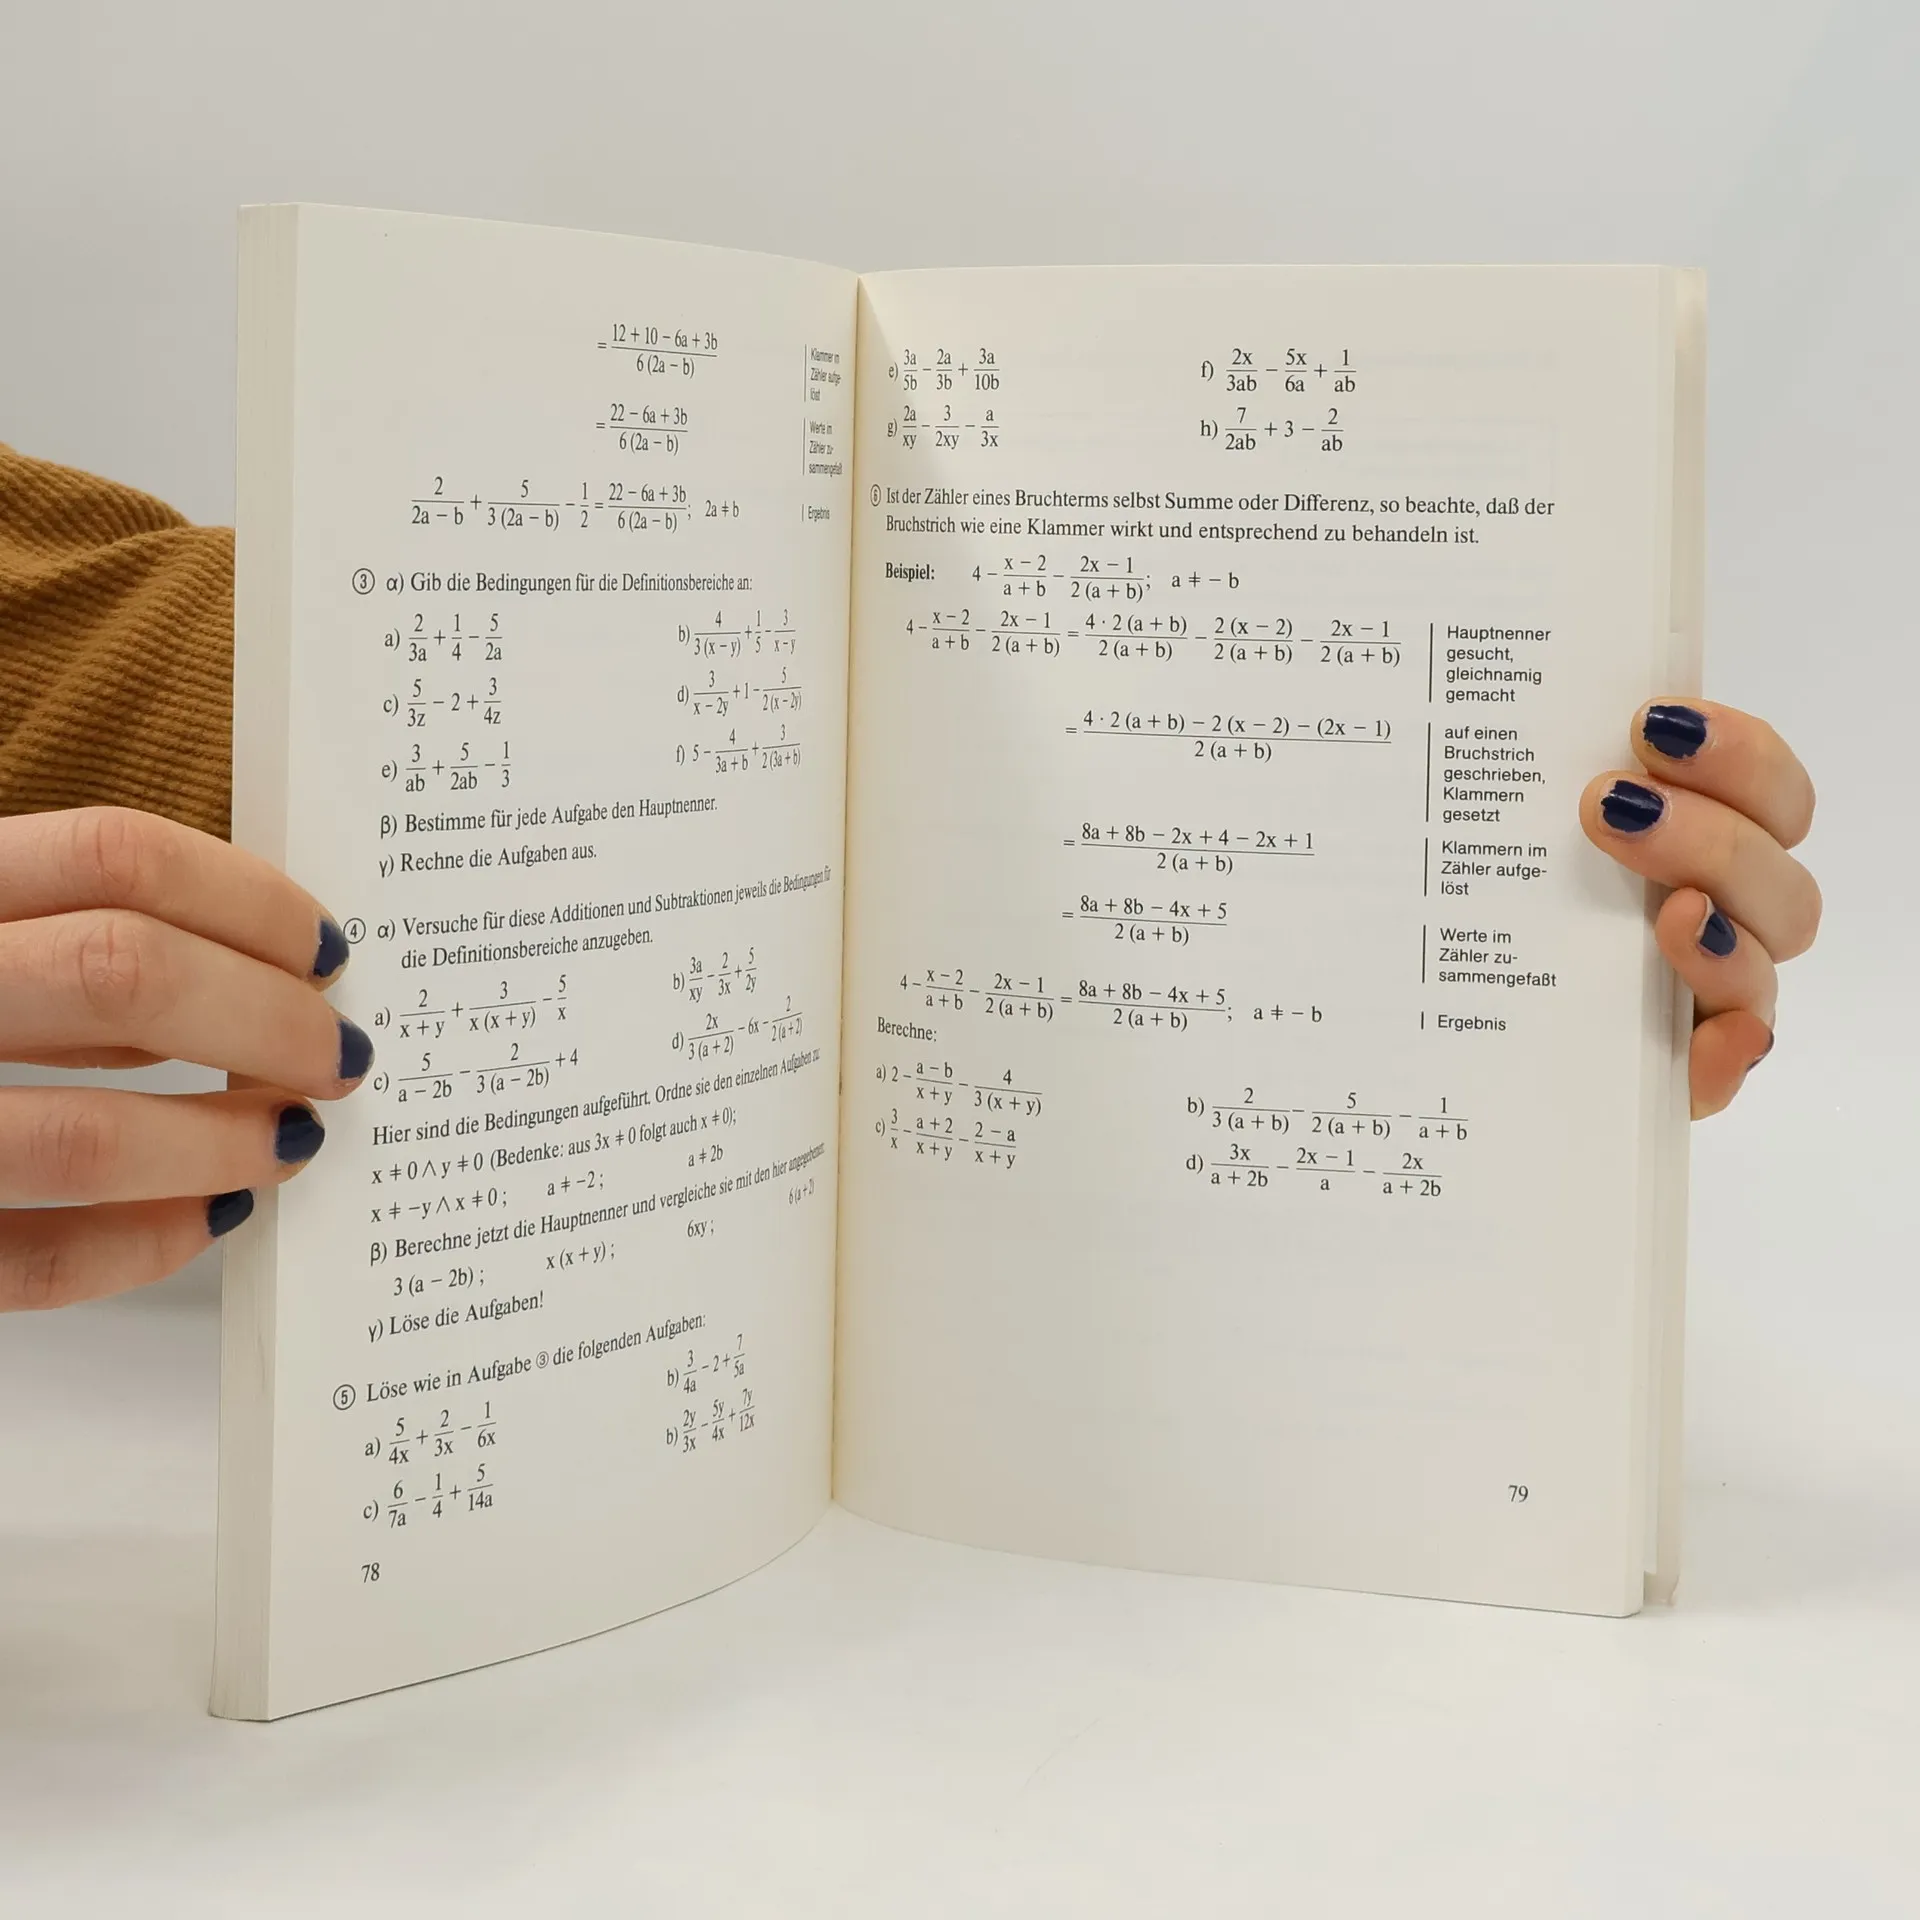 = (12 + 10 − 6a + 3b)/(6 (2a − b))
Klammer im
Zähler aufge-
löst
= (22 − 6a + 3b)/(6 (2a − b))
Werte im
Zähler zu-
sammengefaßt
2/(2a − b) + 5/(3 (2a − b)) − 1/2 = (22 − 6a + 3b)/(6 (2a − b)); 2a ≠ b
Ergebnis
③ α) Gib die Bedingungen für die Definitionsbereiche an:
a) 2/3a + 1/4 − 5/2a b) 4/(3 (x − y)) + 1/5 − 3/(x − y)
c) 5/3z − 2 + 3/4z d) 3/(x − 2y) + 1 − 5/(2 (x − 2y))
e) 3/ab + 5/2ab − 1/3 f) 5 − 4/(3a + b) + 3/(2 (3a + b))
β) Bestimme für jede Aufgabe den Hauptnenner.
γ) Rechne die Aufgaben aus.
④ α) Versuche für diese Additionen und Subtraktionen jeweils die Bedingungen für
die Definitionsbereiche anzugeben.
a) 2/(x + y) + 3/(x (x + y)) − 5/x b) 3a/xy − 2/3x + 5/2y
c) 5/(a − 2b) − 2/(3 (a − 2b)) + 4 d) 2x/(3 (a + 2)) − 6x − 2/(2 (a + 2))
Hier sind die Bedingungen aufgeführt. Ordne sie den einzelnen Aufgaben zu:
x ≠ 0 ∧ y ≠ 0 (Bedenke: aus 3x ≠ 0 folgt auch x ≠ 0);
x ≠ −y ∧ x ≠ 0; a ≠ −2; a ≠ 2b
β) Berechne jetzt die Hauptnenner und vergleiche sie mit den hier angegebenen:
3 (a − 2b); x (x + y); 6xy; 6 (a + 2)
γ) Löse die Aufgaben!
⑤ Löse wie in Aufgabe ③ die folgenden Aufgaben:
a) 5/4x + 2/3x − 1/6x b) 3/4a − 2 + 7/5a
c) 6/7a − 1/4 + 5/14a b) 2y/3x − 5y/4x + 7y/12x
78
e) 3a/5b − 2a/3b + 3a/10b f) 2x/3ab − 5x/6a + 1/ab
g) 2a/xy − 3/2xy − a/3x h) 7/2ab + 3 − 2/ab
⑥ Ist der Zähler eines Bruchterms selbst Summe oder Differenz, so beachte, daß der
Bruchstrich wie eine Klammer wirkt und entsprechend zu behandeln ist.
Beispiel: 4 − (x − 2)/(a + b) − (2x − 1)/(2 (a + b)); a ≠ − b
4 − (x − 2)/(a + b) − (2x − 1)/(2 (a + b)) = (4 · 2 (a + b))/(2 (a + b)) − (2 (x − 2))/(2 (a + b)) − (2x − 1)/(2 (a + b))
Hauptnenner
gesucht,
gleichnamig
gemacht
= (4 · 2 (a + b) − 2 (x − 2) − (2x − 1))/(2 (a + b))
auf einen
Bruchstrich
geschrieben,
Klammern
gesetzt
= (8a + 8b − 2x + 4 − 2x + 1)/(2 (a + b))
Klammern im
Zähler aufge-
löst
= (8a + 8b − 4x + 5)/(2 (a + b))
Werte im
Zähler zu-
sammengefaßt
4 − (x − 2)/(a + b) − (2x − 1)/(2 (a + b)) = (8a + 8b − 4x + 5)/(2 (a + b)); a ≠ − b
Ergebnis
Berechne:
a) 2 − (a − b)/(x + y) − 4/(3 (x + y)) b) 2/(3 (a + b)) − 5/(2 (a + b)) − 1/(a + b)
c) 3/x − (a + 2)/(x + y) − (2 − a)/(x + y) d) 3x/(a + 2b) − (2x − 1)/a − 2x/(a + 2b)
79